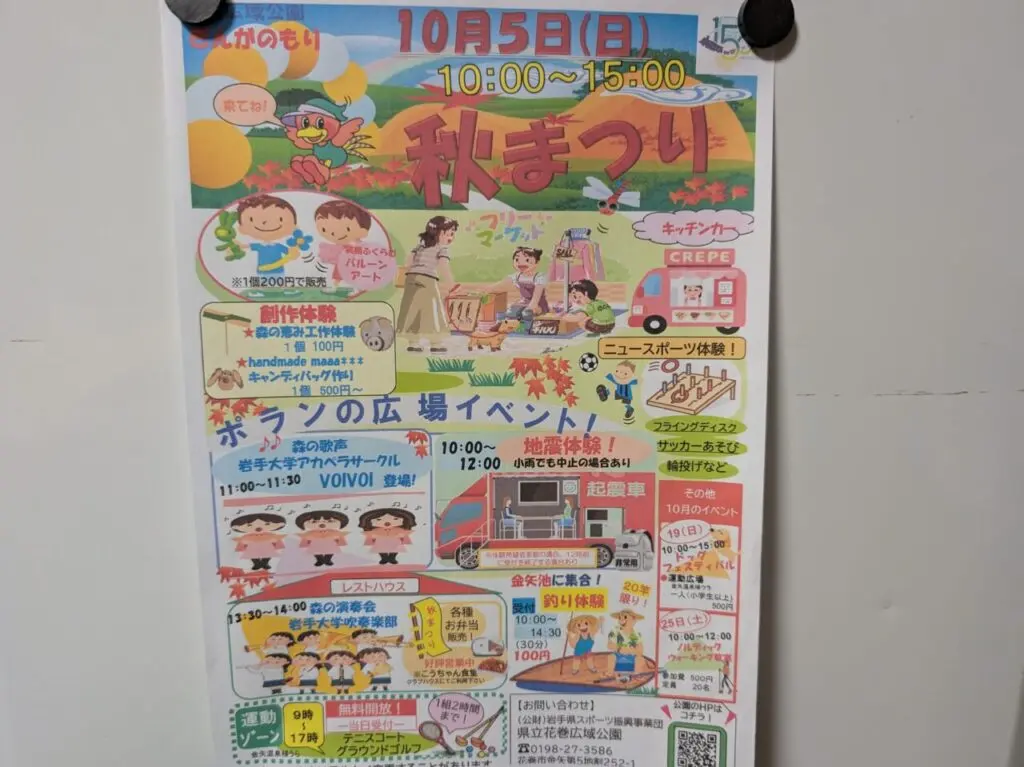 広域公園
10月5日(日)
10:00～15:00
来てね!
秋まつり
フリー
マーケット
キッチンカー
CREPE
バルーン
アート
※1個200円で販売
創作体験
★森の恵み工作体験
1個 100円
★handmade maaa***
キャンディバッグ作り
1個 500円～
ニュースポーツ体験!
フライングディスク
サッカーあそび
輪投げなど
ポランの広場イベント!
森の歌声
岩手大学アカペラサークル
11:00～11:30 VOIVOI 登場!
10:00～
12:00
地震体験!
小雨でも中止の場合あり
起震車
非常用
その他
10月のイベント
19(日)
10:00～15:00
ドッグ
フェスティバル
●運動広場
一人(小学生以上)
500円
25日(土)
10:00～12:00
ノルディック
ウォーキング教室
参加費 500円
定員 20名
レストハウス
13:30～14:00 森の演奏会
岩手大学吹奏楽部
秋まつり
各種
お弁当
販売!
好評営業中
※こうちゃん食堂
クラブハウスにてご利用下さい
金矢池に集合!
釣り体験
20竿
限り!
受付
10:00～
14:30
(30分)
100円
運動
ゾーン
9時
～
17時
無料開放!
―当日受付―
テニスコート
グラウンドゴルフ
1組2時間
まで!
【お問い合わせ】
(公財)岩手県スポーツ振興事業団
県立花巻広域公園
☎0198-27-3586
花巻市金矢第5地割252-1
公園のHPは
コチラ!